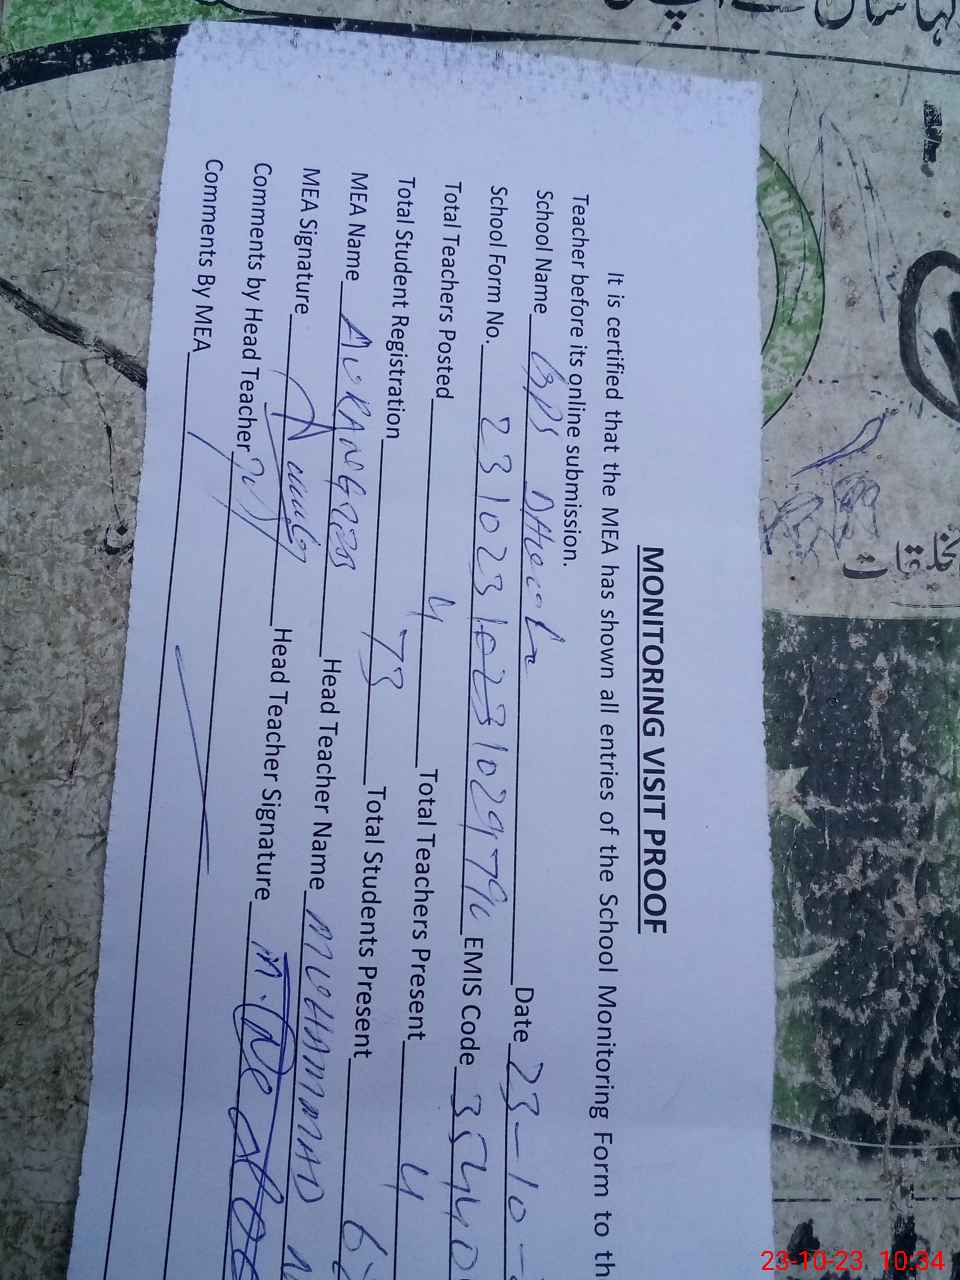 MONITORING VISIT PROOF
It is certified that the MEA has shown all entries of the School Monitoring Form to th
Teacher before its online submission.
School Name GPS Date 23-10-
School Form No. EMIS Code 35440
Total Teachers Posted 4 Total Teachers Present 4
Total Student Registration 73 Total Students Present 6
MEA Name AURANGZEB Head Teacher Name MUHAMMAD
MEA Signature Head Teacher Signature
Comments by Head Teacher
Comments By MEA
23-10-23 10:34